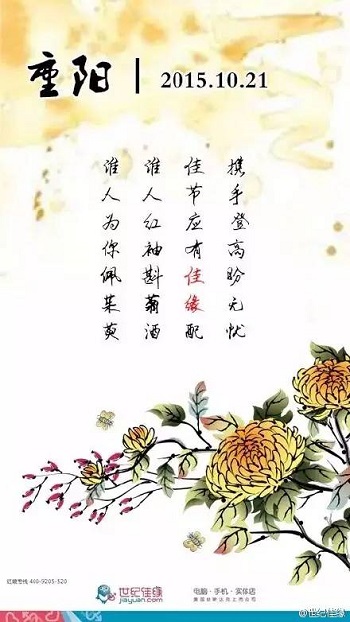 重阳 | 2015.10.21
携手登高盼无忧
佳节应有佳缘配
谁人红袖斟菊酒
谁人为你佩茱萸
世纪佳缘
jiayuan.com
电脑·手机·实体店
美国纳斯达克上市公司
@世纪佳缘